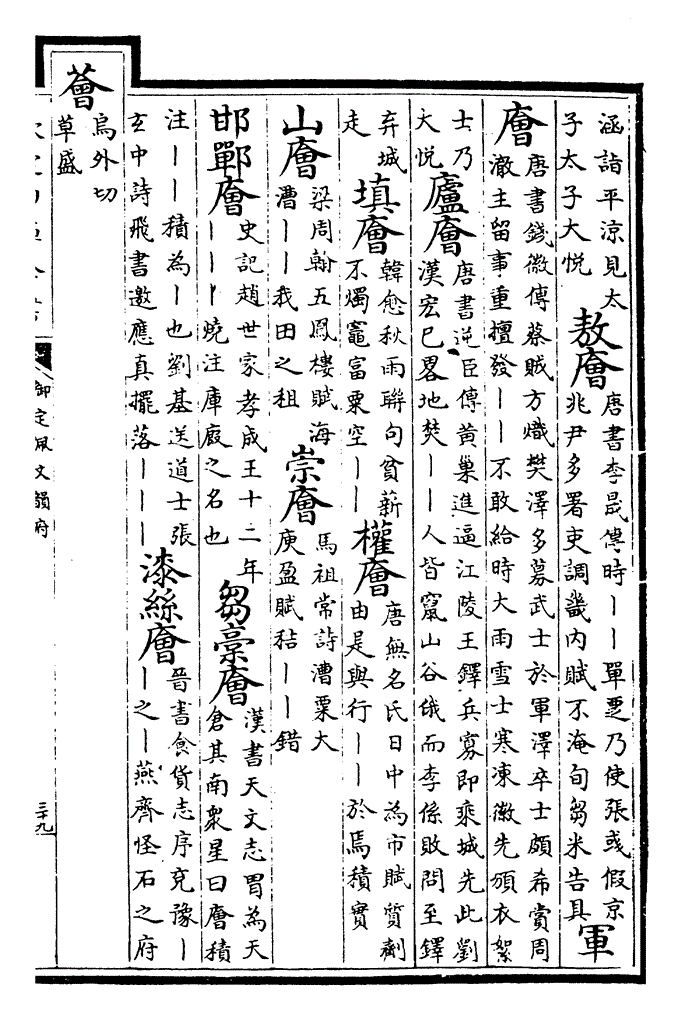 涵詣平涼見太
子太子大悅
敖廥
唐書李晟傳時丨丨單乏乃使張彧假京
兆尹多署吏調畿內賦不淹旬芻米告具
軍
廥
唐書錢徽傳蔡賊方熾樊澤多募武士於軍澤卒士頗希賞周
澈主留事重擅發丨丨不敢給時大雨雪士寒凍徽先頒衣絮
士乃
大悅
廬廥
唐書逆臣傳黃巢進逼江陵王鐸兵寡即乘城先此劉
漢宏已畧地焚丨丨人皆竄山谷俄而李係敗問至鐸
弃城
走
填廥
韓愈秋雨聨句貧薪
不燭竈富粟空丨丨
權廥
唐無名氏日中為市賦質劑
由是與行丨丨於焉積實
山廥
梁周翰五鳳樓賦海
漕丨丨我田之租
崇廥
馬祖常詩漕粟大
庾盈賦秸丨丨錯
邯鄲廥
史記趙世家孝成王十二年
丨丨丨燒注庫廄之名也
芻槀廥
漢書天文志胃為天
倉其南衆星曰廥積
注丨丨積為丨也劉基送道士張
玄中詩飛書邀應真擺落丨丨丨
漆絲廥
晉書食貨志序兖豫丨
丨之丨燕齊怪石之府
薈
烏外切
草盛
御定佩文韻府
三十九